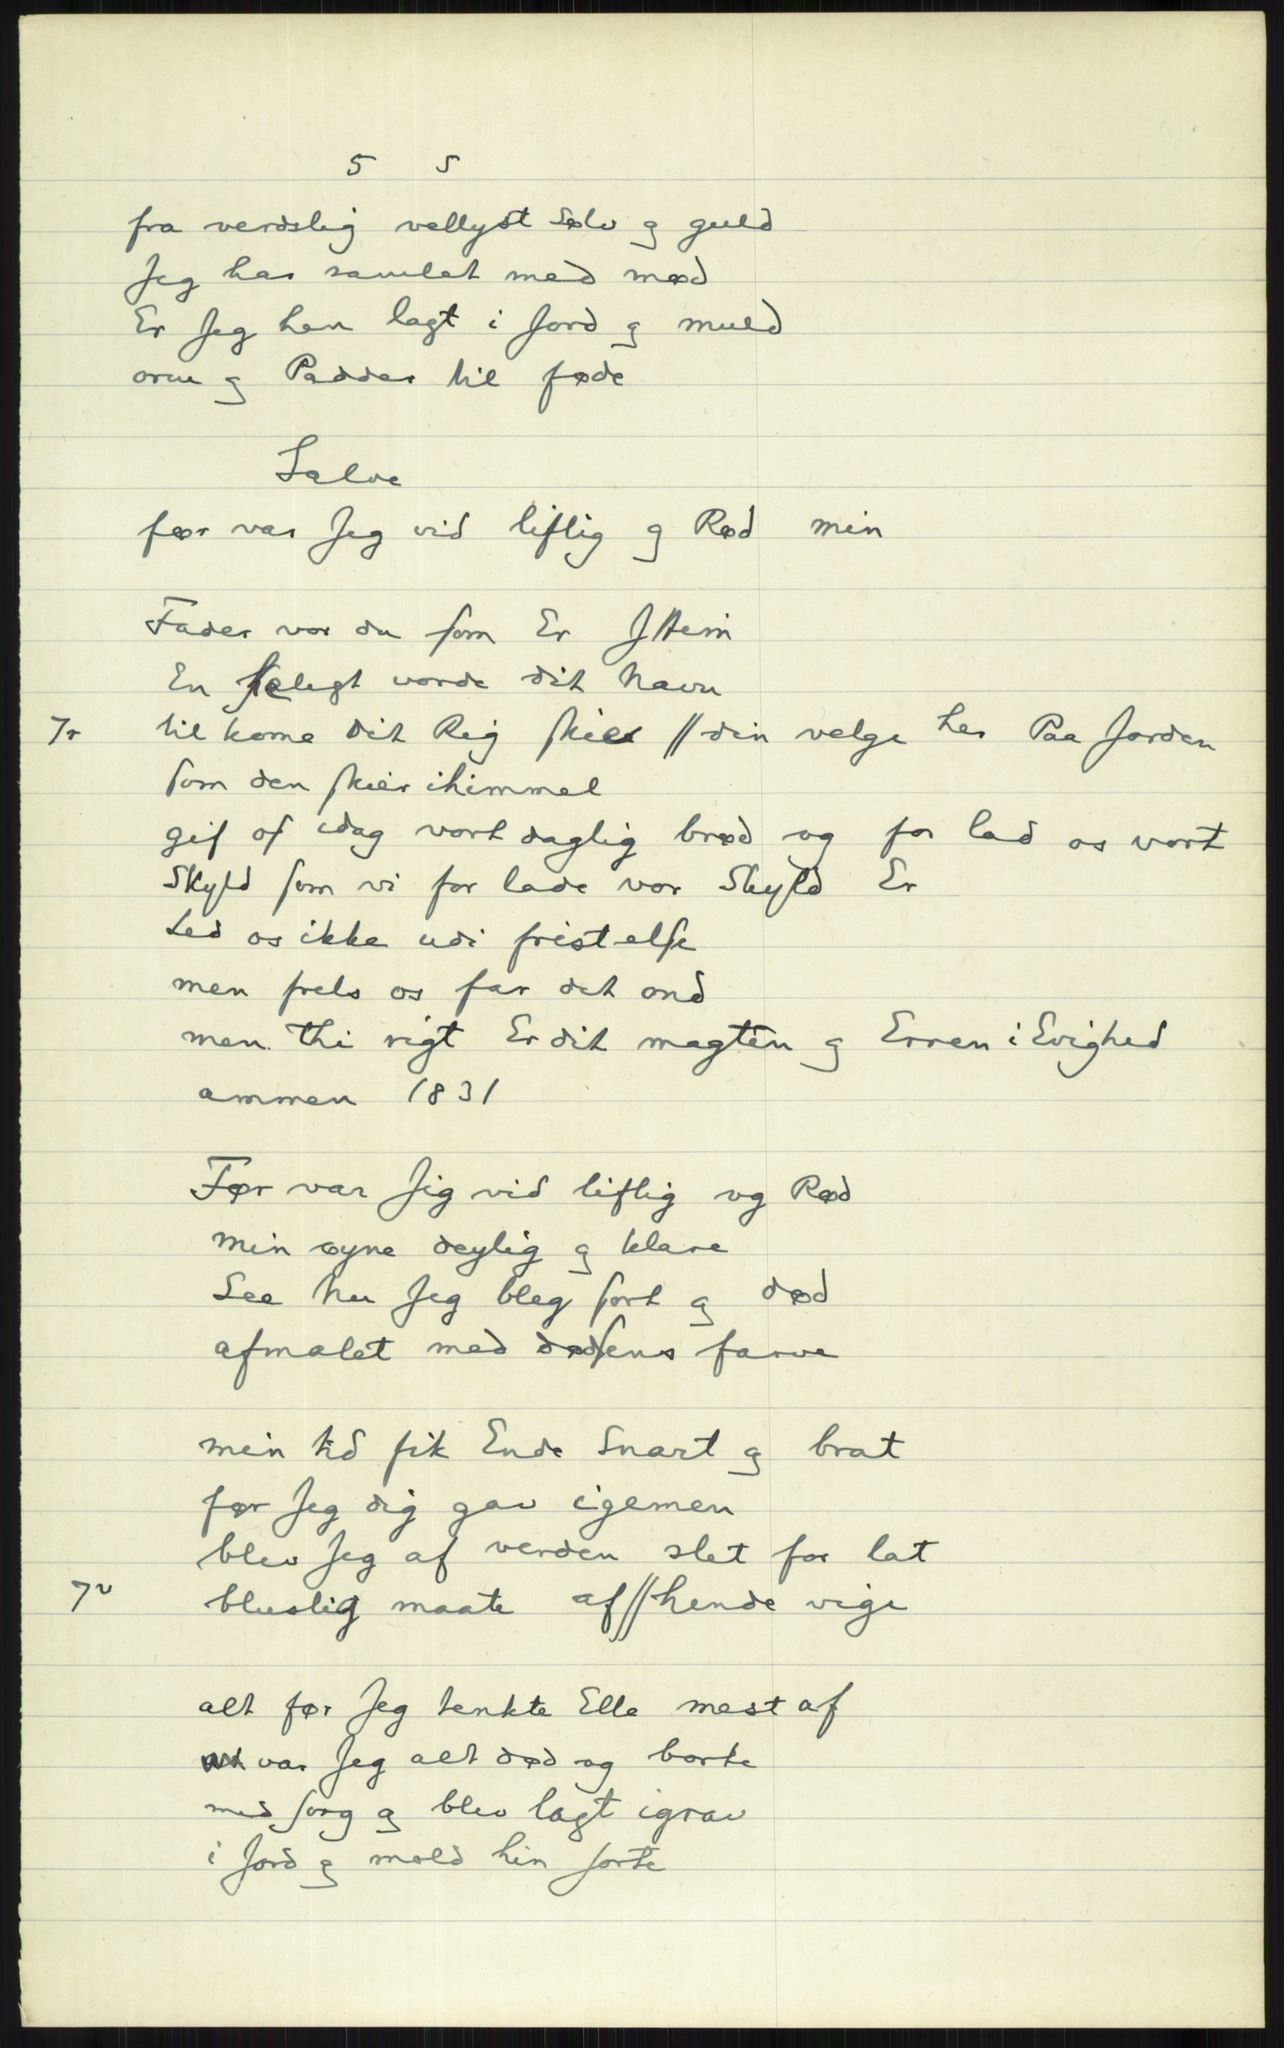 5 5
fra verdslig vellyst Sølv og guld
Jeg har samlet med mød
Er Jeg hen lagt i Jord og muld
orm og Padder til føde
Salve
før var Jeg vid liflig og Rød min
Fader vor du som Er J Hem
En helegt vorde dit Navn
7r til kome Dit Rig skier // din velge her Paa Jorden
som den skier ihimmel
gif os idag vort daglig brød og for lad os vort
Skyld som vi for lade vor Skyld Er
Led os ikke udi fristelse
men frels os far det ond
men thi rigt Er dit magten og Erren i Evighed
ammen 1831
Før var Jig vid liflig og Rød
min øyne deylig og klare
See nu Jeg bleg sort og død
afmalet med dødsens farve
min tid fik Ende Snart og brat
før Jeg dig gav igemen
blev Jeg af verden slet for lat
7v bluslig maate af // hende vige
alt før Jeg tenkte Elle mest af
var Jeg alt død og borte
med sorg og blev lagt igrav
i Jord og mold hin sorte